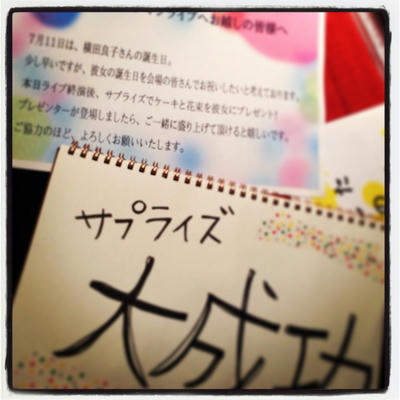 ンライブへお越しの皆様へ
7月11日は、横田良子さんの誕生日。
少し早いですが、彼女の誕生日を会場の皆さんでお祝いしたいと考えております。
本日ライブ終演後、サプライズでケーキと花束を彼女にプレゼント!
プレゼンターが登場しましたら、ご一緒に盛り上げて頂けると嬉しいです。
ご協力のほど、よろしくお願いいたします。
サプライズ
大成功